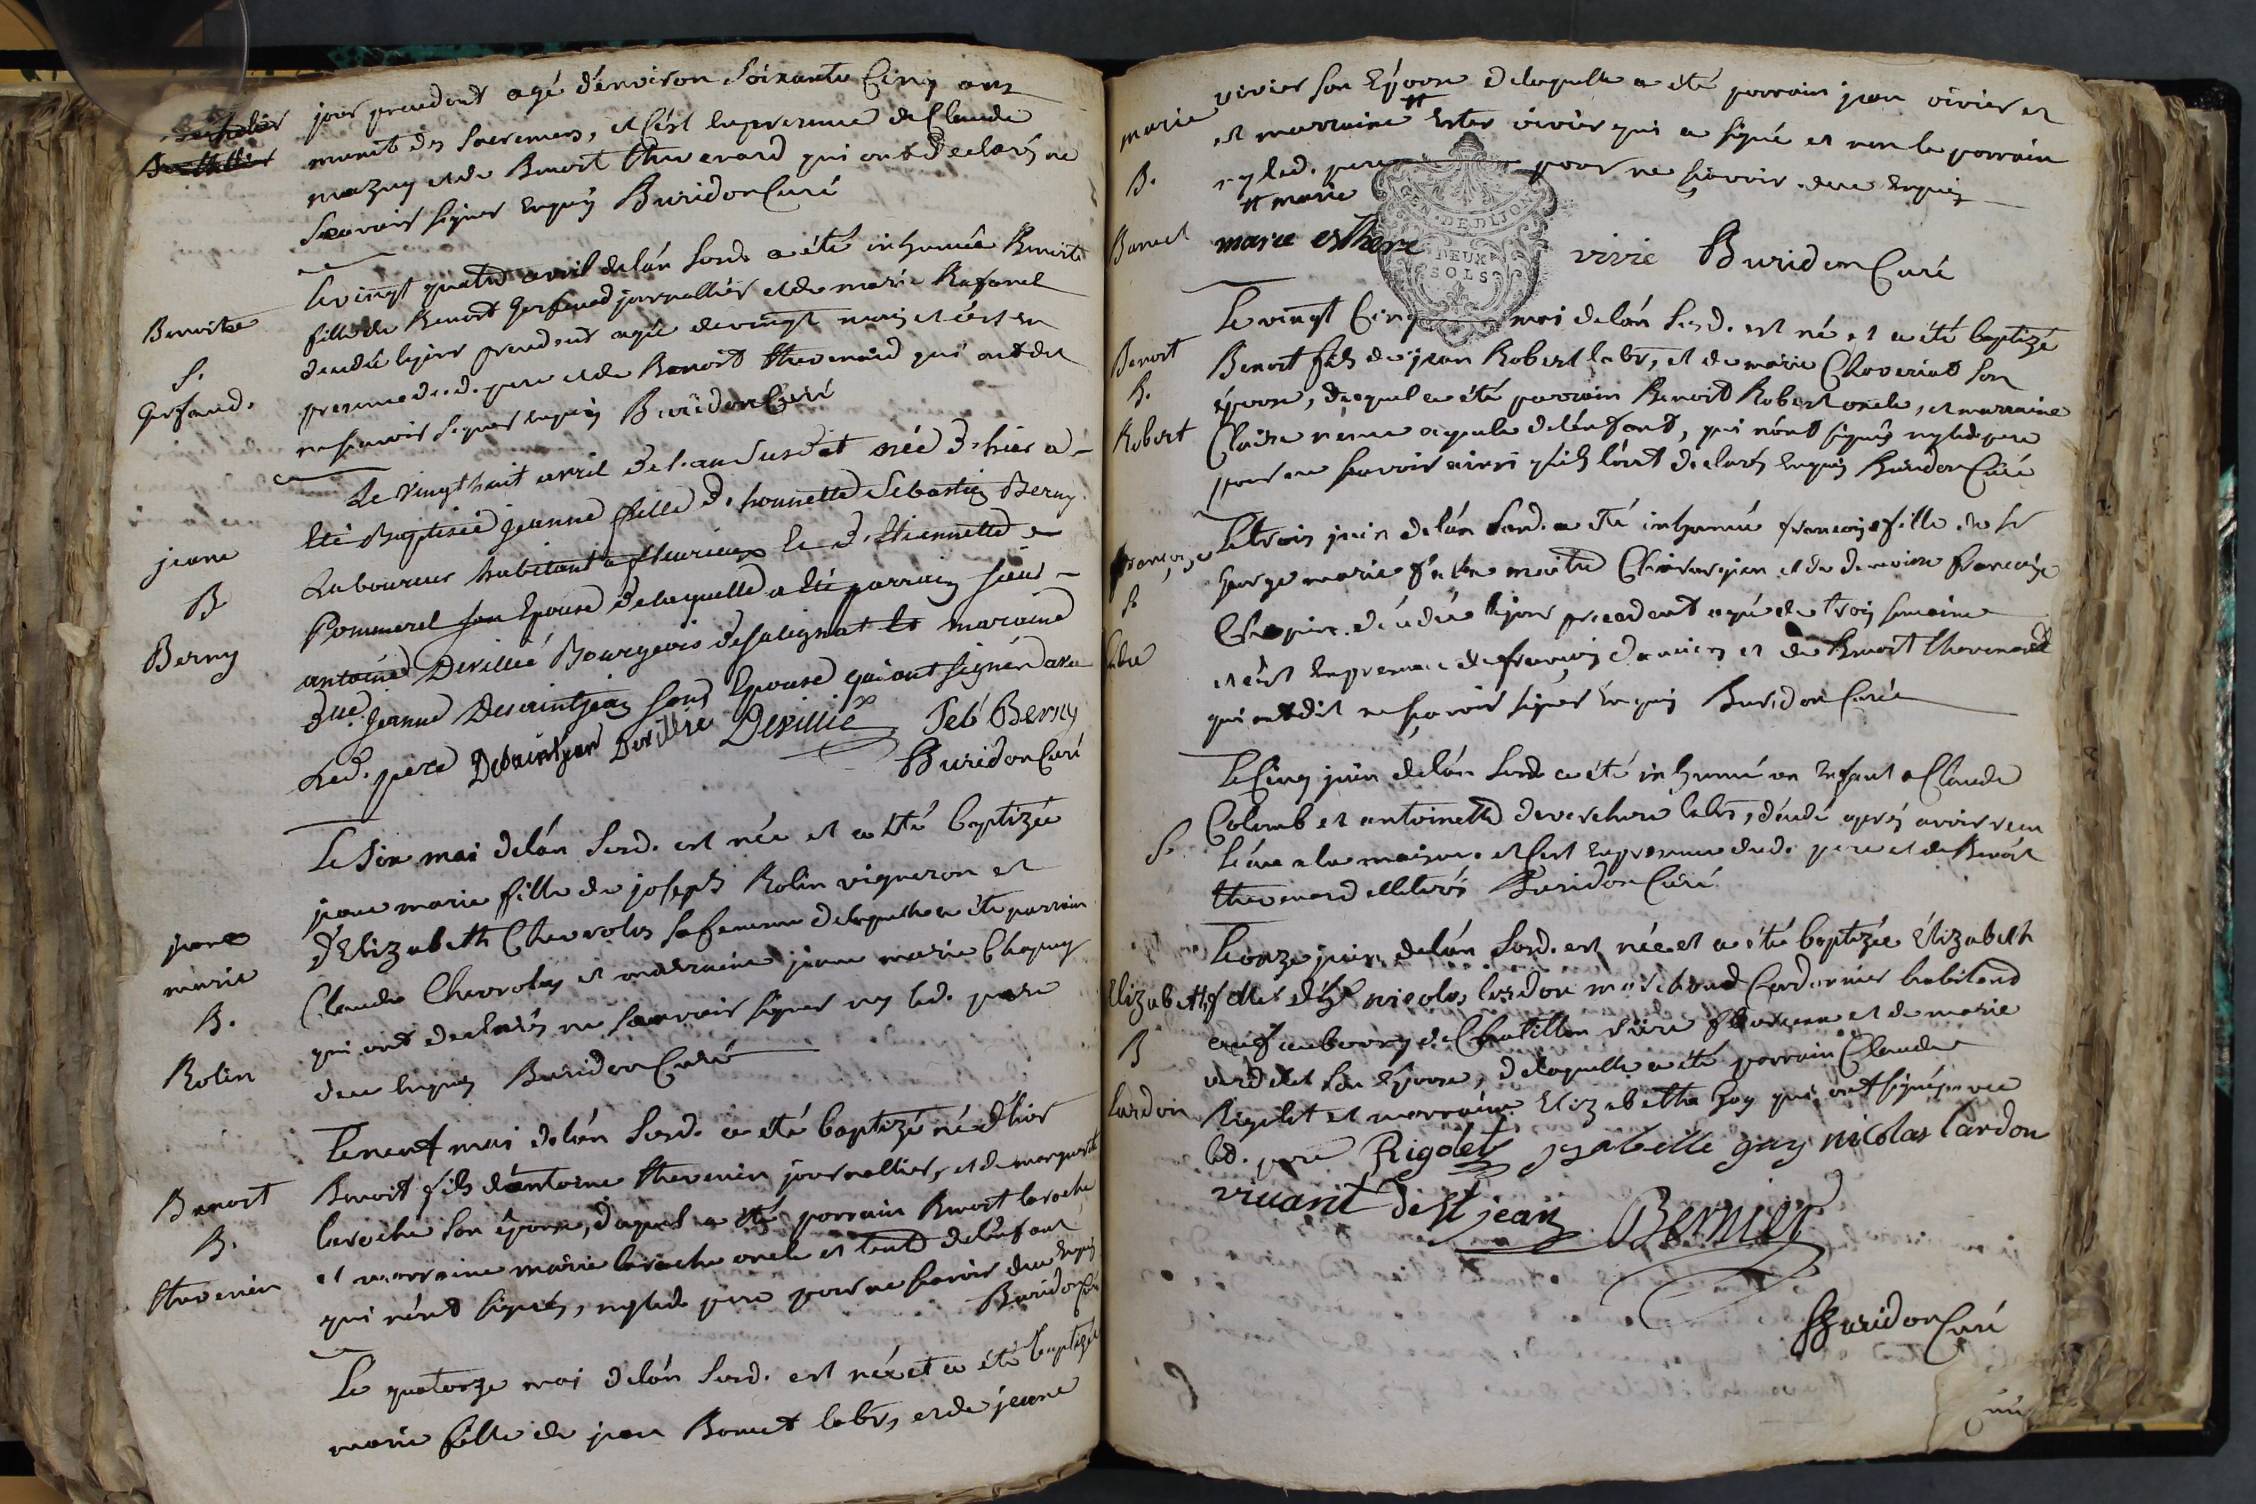 jour precedent agé d'environ Soixante Cinq ans
munit des Sacremens, et c'est en presence de Claude
mazuy et de Benoit thevenard qui ont declarés ne
Scavoir signer enquis Buridon Curé
Benoite
S.
Gerfaud.
Le vingt quatre avril de lán susd. a été inhumée Benoite
fille de Benoit Gerfaud journallier et de marie Rafanel
decedée le jour precedent agée de vingt mois et c'est en
presence dud. pere et de Benoit thevenard qui ont dit
ne scavoir signer enquis Buridon Curé
jeane
B
Berny
Le Vingt huit avril de l'an Susdit née d'hier a
Eté Baptisée jeanne fille d. honnette Sebastien Berny
Laboureur habitant a fleurieux et d. Etiennette
Pommerel son Epouse de laquelle a été parrain sieur
antoine Devillié Bourgeois de salignat et maraine
dlle. jeanne Desaintjean son Epouse qui ont signér avec
Led. pere Desaintjean Devillie Devillié Seb Berny
Buridon Curé
jeane
marie
B.
Rolin
Le Six mai de lán susd. est née et a été baptizée
jeane marie fille de joseph Rolin vigneron et
d'Elizabeth Chevrolas sa femme de laquelle a été parrain
Claude Chevrolas et marraine jeane marie Chapuy
qui ont declarés ne scavoir signer ny led. pere
deue enquis Buridon Curé
Benoit
B.
thevenin
Le neuf mai de lán susd. a été baptizé né d'hier
Benoit fils d'antoine thevenin journallier, et de marguerite
laroche son épouse, duquel a été parrain Benoit laroche
et marraine marie laroche oncle et tante de lénfant
qui n'ont signés, ny led. pere pour ne scavoir deue enquis
Buridon Curé
Le quatorze mai de lán susd. est née et a été baptizée
marie fille de jean Bonnet labr, et de jeane
marie
B.
Bonnet
vivier son épouse de laquelle a été parrain jean vivier et
et marraine # Ester vivier qui a signé et non le parrain
ny led. pere pour ne scavoir. deue enquis
# marie
marie esthere vivie Buridon Curé
EN. DE DIJON
DEUX
SOLS
Benoit
B.
Robert
Le vingt Cinq mai de lán susd. est né et a été baptizé
Benoit fils de jean Robert labr, et de marie Chaveriat son
épouse, duquel a été parrain Benoit Robert oncle, et marraine
Claire ayeule de lénfant, qui n'ont signés ny led. pere
pour ne scavoir ainsi qu'ils l'ont declarés enquis Buridon Curé
françoise
S.
Le trois juin de lán susd. a été inhumée françoise fille de sr
george marie maitre Chirurgien et de demoiselle françoise
decedée le jour precedent agée de trois semaine
et c'est en presence de françois et de Benoit thevenard
qui ont dit ne scavoir signer enquis Buridon Curé
S.
Le Cinq juin de lán susd. a été inhumé un enfant a Claude
Colomb et antoinette labr, decedé après avoir reçu
l'eau a la maison. et c'est en presence dud. pere et de Benoit
thevenard illetrés Buridon Curé
Elizabeth
B
Lardon
Le onze juin de lán susd. est née et a été baptizée Elizabeth
fille de nicolas lardon marchand Cordonnier habitant
au faubourg de Chatillon et de marie
son épouse, de laquelle a été parrain Claude
Rigolet et marraine Elizabeth Gay qui ont signés avec
led. pere Rigolet ysabelle gay nicolas Lardon
vivant de St jean Bernier
Buridon Curé